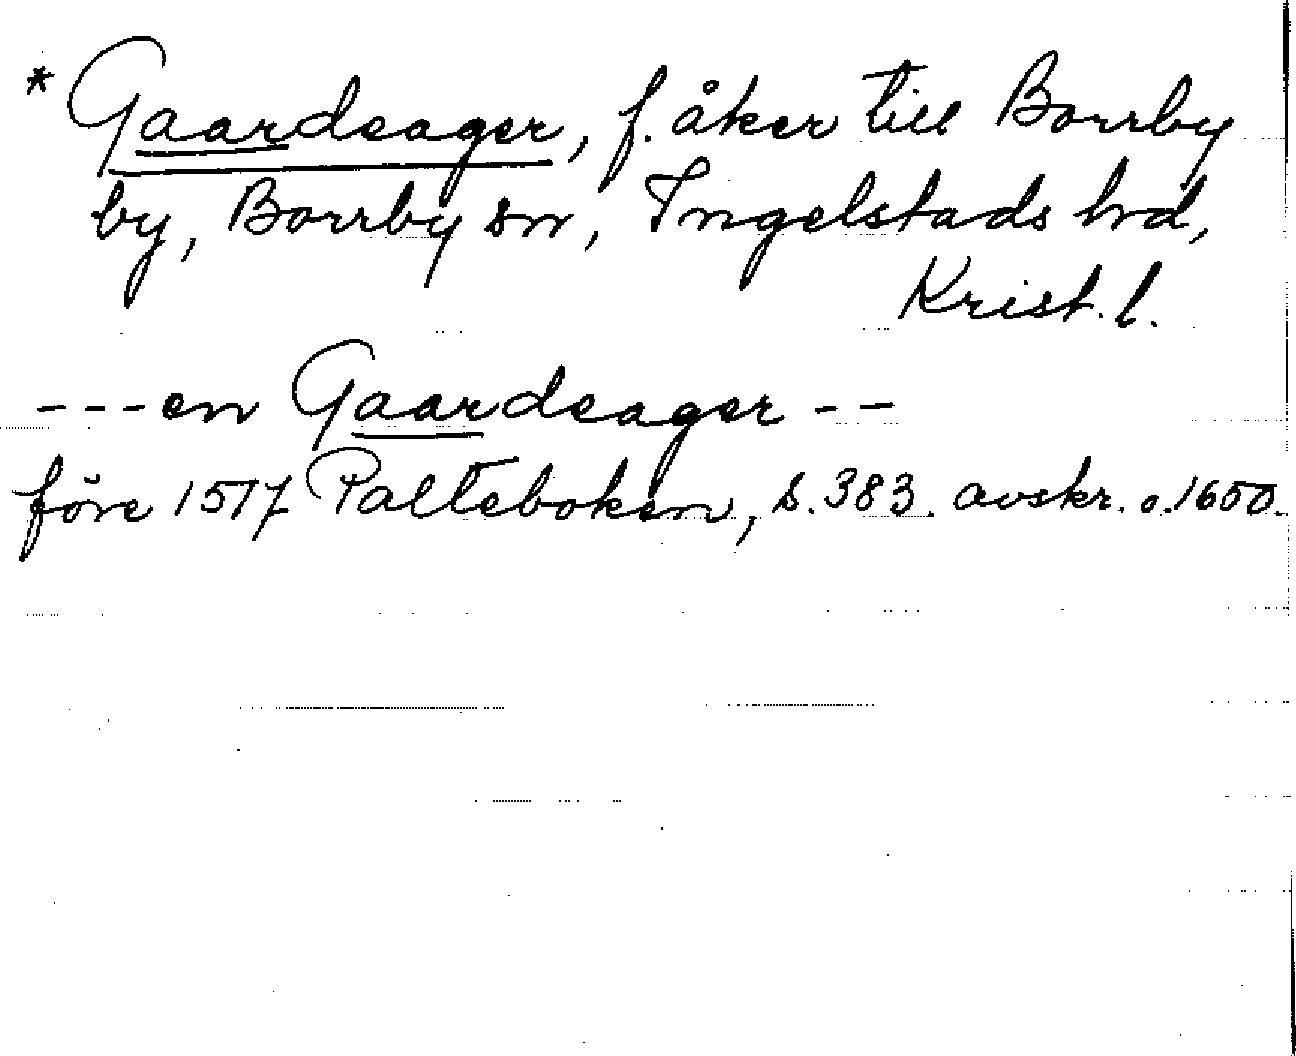 * Gaardeager, f. åker till Borrby
by, Borrby sn, Ingelstads hd,
Krist. l.
--- en Gaardeager --
före 1517 Palteboken, s. 383. avskr. o. 1650.